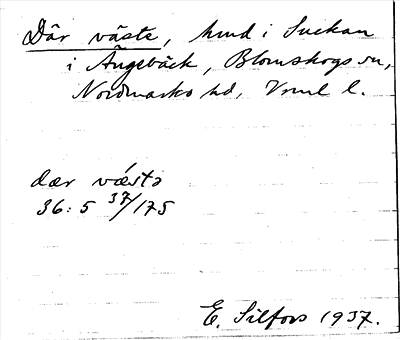 Där väste, hmd i Suckan
i Ängebäck, Blomskogs sn,
Nordmarks hd, Vrml l.
dær vǽstə
36: 5 37/175
E. Silfors 1937.